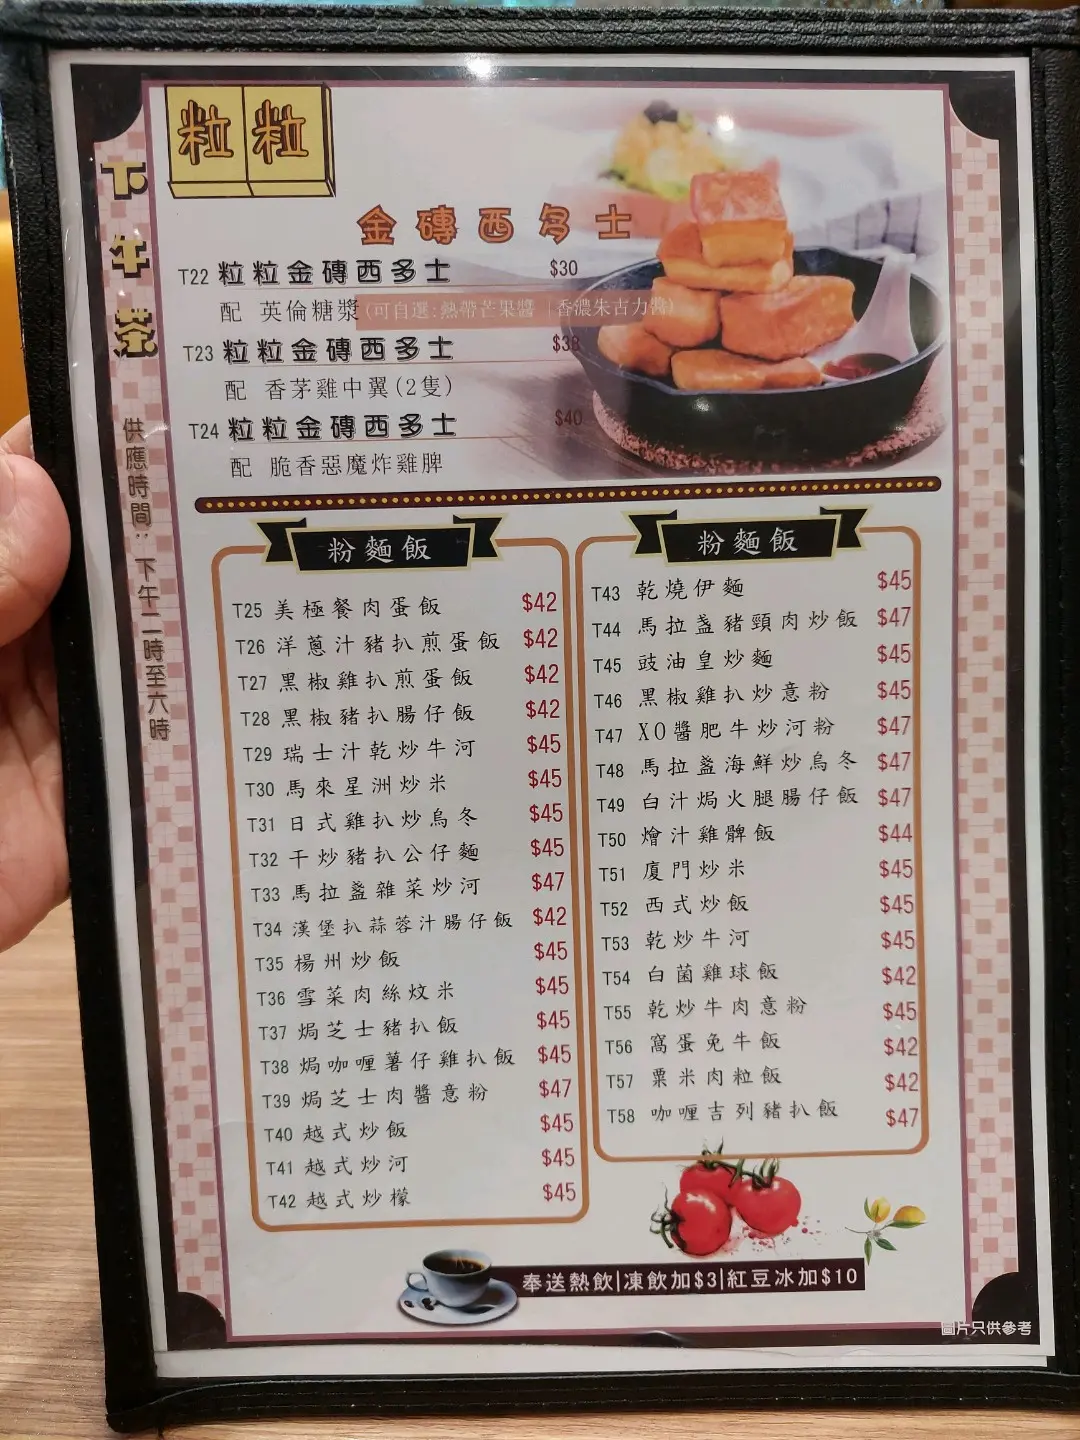 粒粒
下午茶
供應時間：下午二時至六時
金磚西多士
T22 粒粒金磚西多士 $30
配 英倫糖漿(可自選:熱帶芒果醬｜香濃朱古力醬)
T23 粒粒金磚西多士 $38
配 香茅雞中翼(2隻)
T24 粒粒金磚西多士 $40
配 脆香惡魔炸雞脾
粉麵飯
T25 美極餐肉蛋飯 $42
T26 洋蔥汁豬扒煎蛋飯 $42
T27 黑椒雞扒煎蛋飯 $42
T28 黑椒豬扒腸仔飯 $42
T29 瑞士汁乾炒牛河 $45
T30 馬來星洲炒米 $45
T31 日式雞扒炒烏冬 $45
T32 干炒豬扒公仔麵 $45
T33 馬拉盞雜菜炒河 $47
T34 漢堡扒蒜蓉汁腸仔飯 $42
T35 楊州炒飯 $45
T36 雪菜肉絲炆米 $45
T37 焗芝士豬扒飯 $45
T38 焗咖喱薯仔雞扒飯 $45
T39 焗芝士肉醬意粉 $47
T40 越式炒飯 $45
T41 越式炒河 $45
T42 越式炒檬 $45
粉麵飯
T43 乾燒伊麵 $45
T44 馬拉盞豬頸肉炒飯 $47
T45 豉油皇炒麵 $45
T46 黑椒雞扒炒意粉 $45
T47 XO醬肥牛炒河粉 $47
T48 馬拉盞海鮮炒烏冬 $47
T49 白汁焗火腿腸仔飯 $47
T50 燴汁雞髀飯 $44
T51 廈門炒米 $45
T52 西式炒飯 $45
T53 乾炒牛河 $45
T54 白菌雞球飯 $42
T55 乾炒牛肉意粉 $45
T56 窩蛋免牛飯 $42
T57 粟米肉粒飯 $42
T58 咖喱吉列豬扒飯 $47
奉送熱飲|凍飲加$3|紅豆冰加$10
圖片只供參考